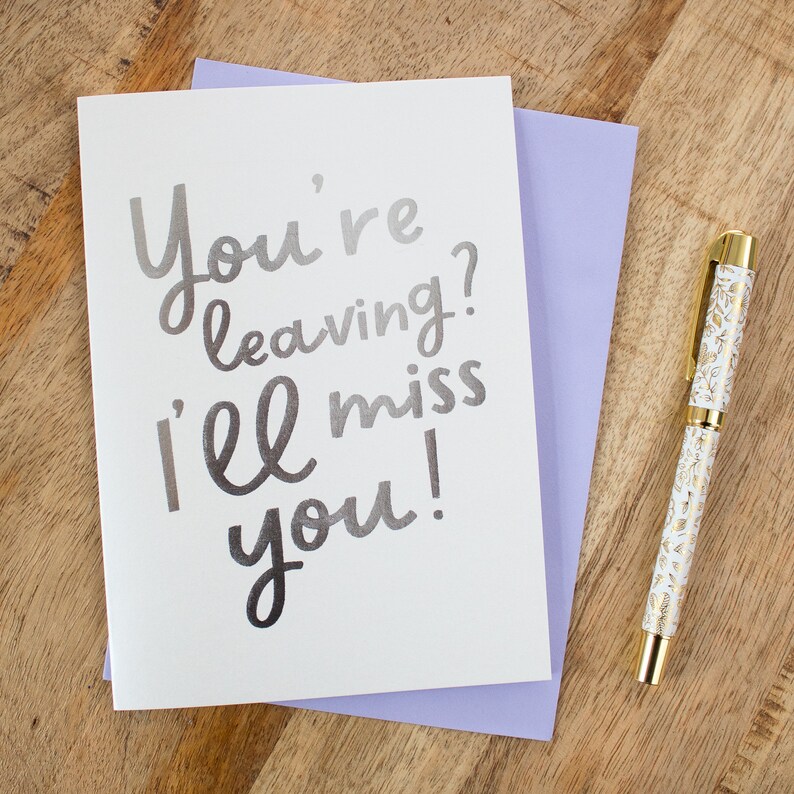 You're
leaving?
I'll miss
you!